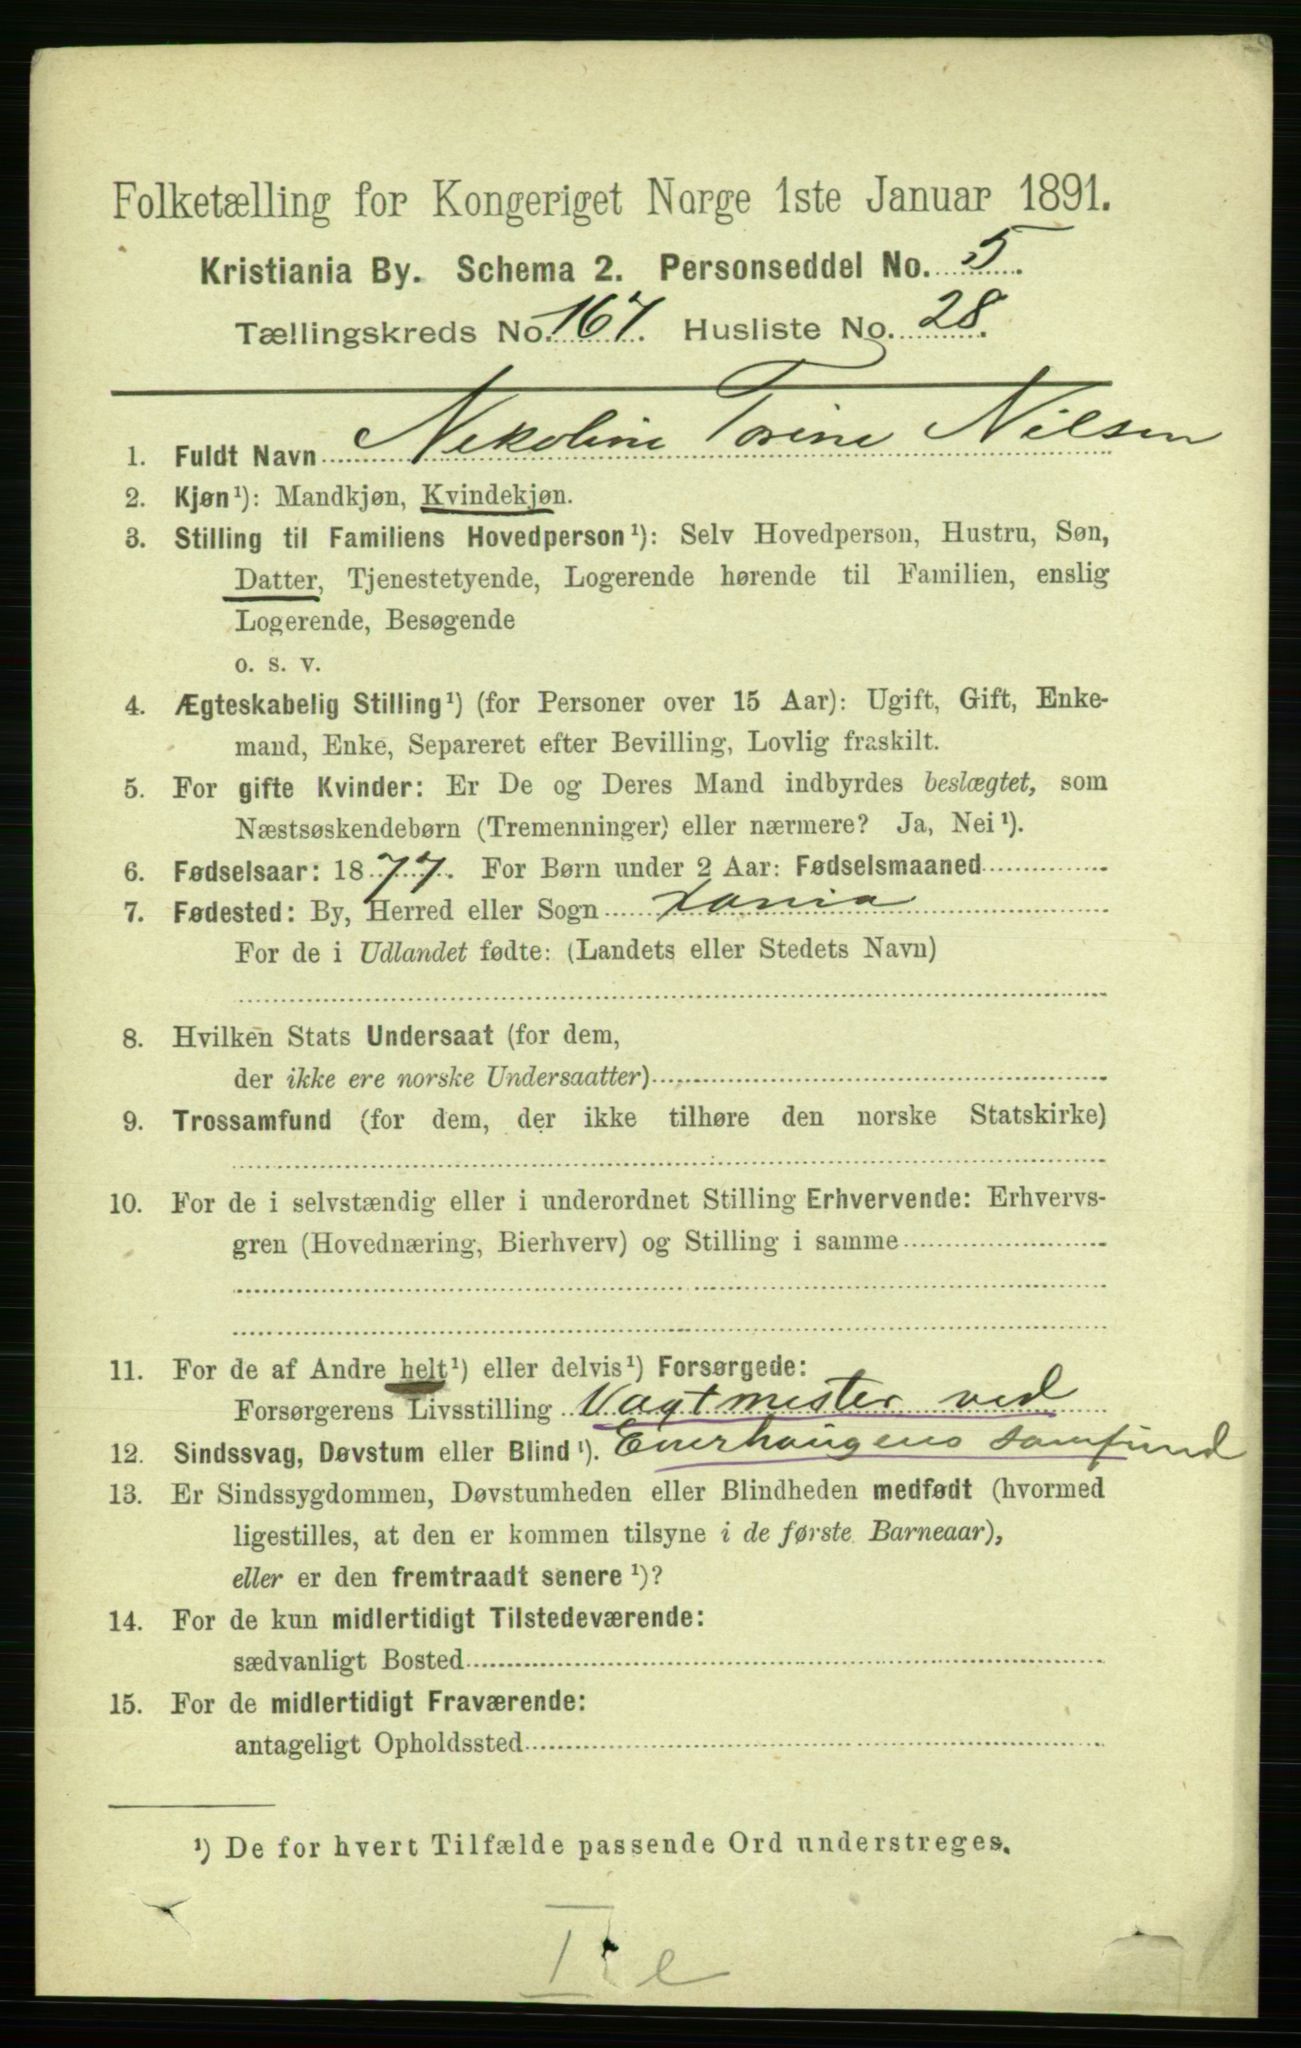 Folketælling for Kongeriget Norge 1ste Januar 1891.
Kristiania By. Schema 2. Personseddel No. 5.
Tællingskreds No. 167. Husliste No. 28.
1. Fuldt Navn Nekoline Torine Nilsen
2. Kjøn¹): Mandkjøn, Kvindekjøn.
3. Stilling til Familiens Hovedperson¹): Selv Hovedperson, Hustru, Søn,
Datter, Tjenestetyende, Logerende hørende til Familien, enslig
Logerende, Besøgende
o. s. v.
4. Ægteskabelig Stilling¹) (for Personer over 15 Aar): Ugift, Gift, Enke-
mand, Enke, Separeret efter Bevilling, Lovlig fraskilt.
5. For gifte Kvinder: Er De og Deres Mand indbyrdes beslægtet, som
Næstsøskendebørn (Tremenninger) eller nærmere? Ja, Nei¹).
6. Fødselsaar: 1877. For Børn under 2 Aar: Fødselsmaaned
7. Fødested: By, Herred eller Sogn Xania
For de i Udlandet fødte: (Landets eller Stedets Navn)
8. Hvilken Stats Undersaat (for dem,
der ikke ere norske Undersaatter)
9. Trossamfund (for dem, der ikke tilhøre den norske Statskirke)
10. For de i selvstændig eller i underordnet Stilling Erhvervende: Erhvervs-
gren (Hovednæring, Bierhverv) og Stilling i samme
11. For de af Andre helt¹) eller delvis¹) Forsørgede:
Forsørgerens Livsstilling Vagtmester ved
12. Sindssvag, Døvstum eller Blind¹). Enerhaugens samfund
13. Er Sindssygdommen, Døvstumheden eller Blindheden medfødt (hvormed
ligestilles, at den er kommen tilsyne i de første Barneaar),
eller er den fremtraadt senere¹)?
14. For de kun midlertidigt Tilstedeværende:
sædvanligt Bosted
15. For de midlertidigt Fraværende:
antageligt Opholdssted
¹) De for hvert Tilfælde passende Ord understreges.